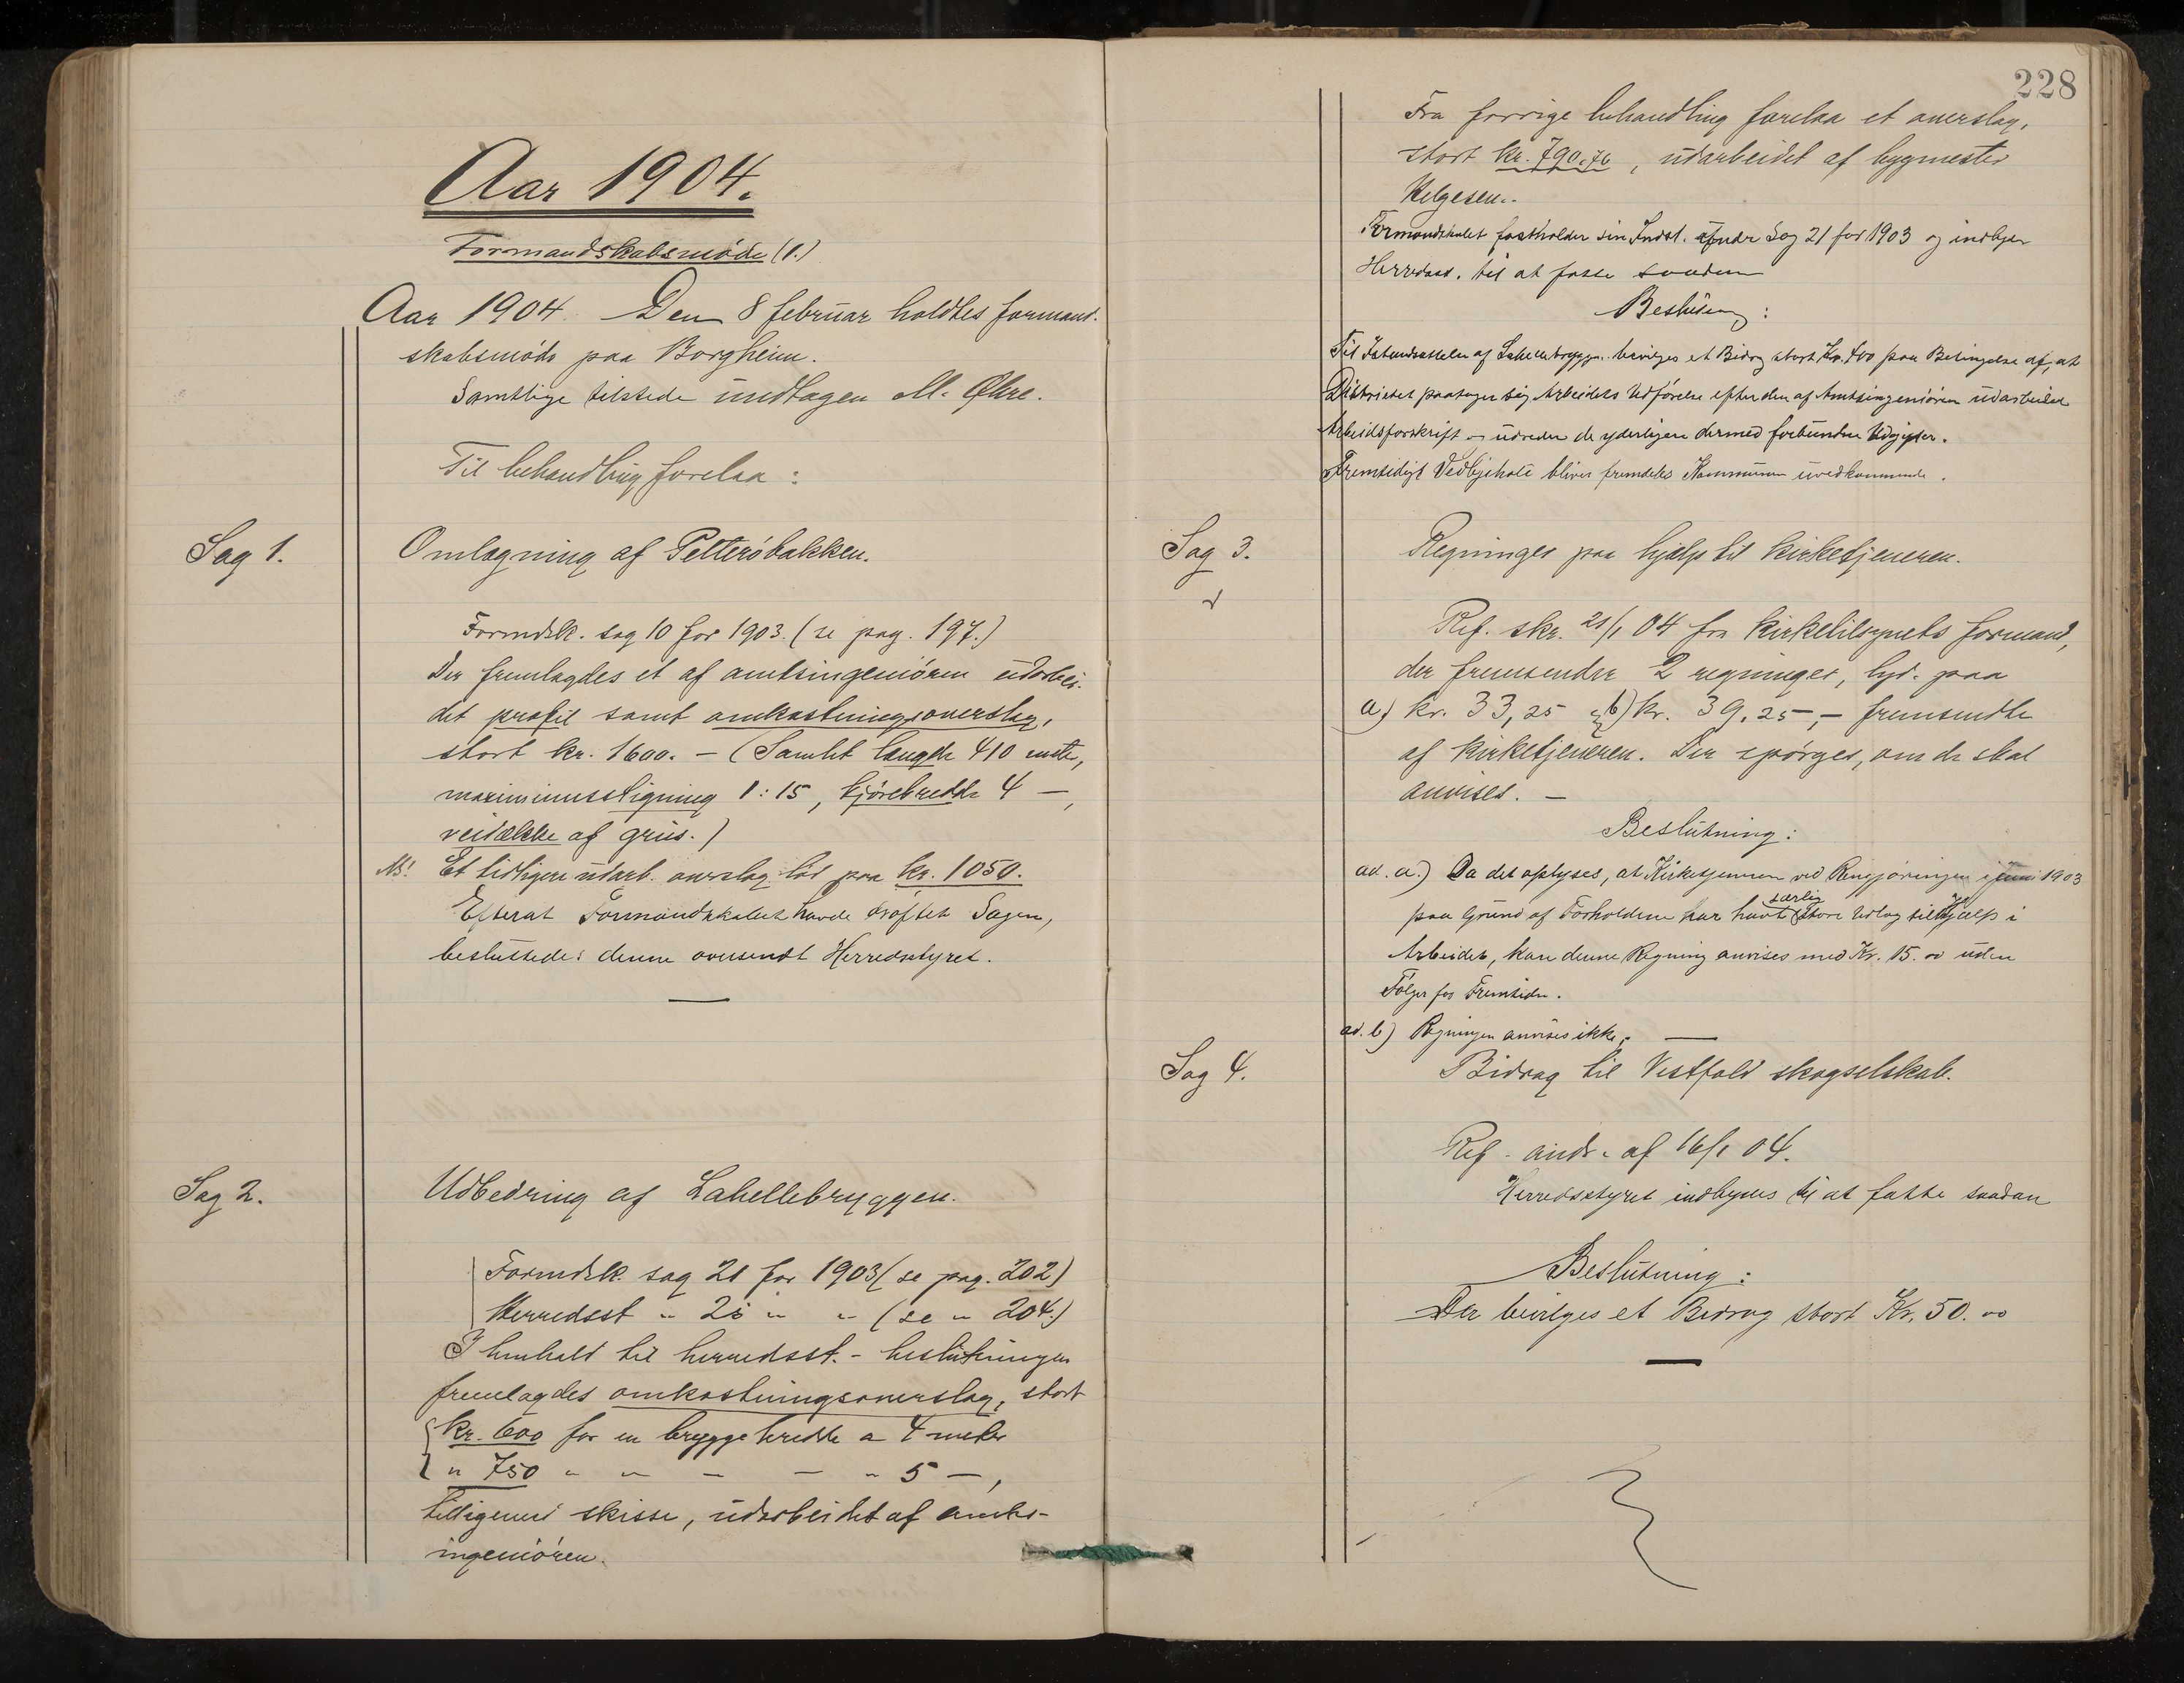 Aar 1904.
Formandskabsmøde (1.)
Aar 1904. Den 8 februar holdtes formand-
skabsmøde paa Borgheim.
Samtlige tilstede undtagen M. Øhre.
Til behandling forelaa:
Sag 1. Omlægning af Petterøbakken.
Formdsk. sag 10 for 1903. (se pag. 197.)
Der fremlagdes et af amtsingeniøren udarbei-
det profil samt omkostningsoverslag,
stort kr. 1600. – (Samlet længde 410 meter,
maximumsstigning 1:15, kjørebredde 4 –,
veidække af grus.)
NB! Et tidligere udarb. overslag lød paa kr. 1050.
Efterat Formandskabet havde drøftet Sagen,
besluttedes denne oversendt Herredsstyret.
Sag 2. Udbedring af Lahellebryggen.
Formdsk. sag 21 for 1903 (se pag. 202)
Herredsst " 28 " " (se " 204.)
I henhold til herredsst.- beslutningen
fremlagdes omkostningsoverslag, stort
kr. 600 for en bryggebredde a 4 meter
" 750 " " – – " 5 –,
tilligemed skisse, udarbeidet af amts-
ingeniøren.
228
Fra forrige behandling forelaa et overslag,
stort kr. 790.76, udarbeidet af bygmester
Helgesen.
Formandskabet fastholder sin Indst. under Sag 21 for 1903 og indbyder
Herredsst. til at fatte saadan
Beslutning:
Til Istandsættelse af Lahellebryggen bevilges et Bidrag stort Kr. 400 paa Betingelse af, at
Distriktet paatager sig Arbeidets Udførelse efter den af Amtsingeniøren udarbeidede
Arbeidsforskrift og udreder de yderligere dermed forbundne Udgifter.
Fremtidigt Vedligehold bliver fremdeles Kommunen uvedkommende.
Sag 3. Regninger paa hjælp til kirketjeneren.
Ref. skr. 21/1 04 fra kirketilsynets formand,
der fremsender 2 regninger, lyd. paa
a) kr. 33,25 og b) kr. 39,25 –, – fremsendte
af kirketjeneren. Der spørges, om de skal
anvises. –
Beslutning:
ad. a.) Da det oplyses, at Kirketjeneren ved Rengjøringen i juni 1903
paa Grund af Forholdene har havt særlig store Udlæg til Hjælp i
Arbeidet, kan denne Regning anvises med Kr. 15.00 uden
Følger for Fremtiden.
ad. b) Regningen anvises ikke.
Sag 4. Bidrag til Vestfold skogselskab.
Ref. andr. af 16/1 04.
Herredsstyret indbydes til at fatte saadan
Beslutning:
Der bevilges et Bidrag stort Kr. 50.00